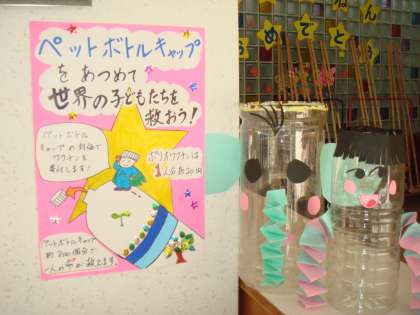 ペットボトルキャップ
をあつめて
世界の子どもたちを
救おう！
ペットボトル
キャップの対価で
ワクチンを
寄付します！
ポリオワクチンは
1人分約20円
ペットボトルキャップ
約800個分で
一人の命が救えます。
おめでとう